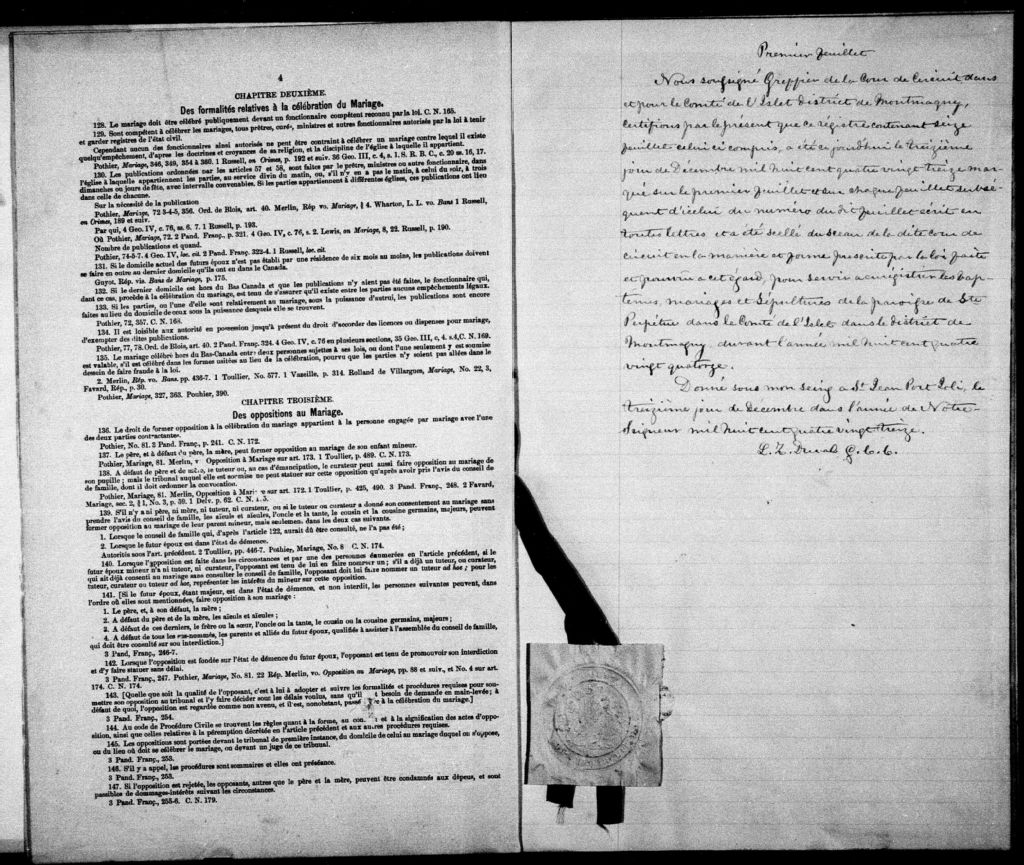 4
CHAPITRE DEUXIÈME.
Des formalités relatives à la célébration du Mariage.
128. Le mariage doit être célébré publiquement devant un fonctionnaire compétent reconnu par la loi. C. N. 165.
129. Sont compétent à célébrer les mariages, tous prêtres, curé, ministres et autres fonctionnaires autorisés par la loi à tenir
et garder registres de l'état civil.
Cependant aucun des fonctionnaires ainsi autorisés ne peut être contraint à célébrer un mariage contre lequel il existe
quelqu'empêchement, d'apres les doctrines et croyances de sa religion, et la discipline de l'église à laquelle il appartient.
Pothier, Mariage, 346, 349, 354 à 360. 1 Russell, on Crimes, p. 192 et suiv. 36 Geo. III, c. 4, s. 1. S. R. B. C., c. 20 ss. 16, 17.
130. Les publications ordonnées par les articles 57 et 58, sont faites par le prêtre, ministre ou autre fonctionnaire, dans
l'église à laquelle appartiennent les parties, au service divin du matin, ou, s'il n'y en a pas le matin, à celui du soir, à trois
dimanches ou jours de fête, avec intervalle convenables. Si les parties appartiennent à différentes églises, ces publications ont lieu
dans celle de chacune.
Sur la nécessité de la publication
Pothier, Mariage, 72 3-4-5, 356. Ord. de Blois, art. 40. Merlin, Rép vo. Mariage, § 4. Wharton, L. L. vo. Bans 1 Russell,
on Crimes, 189 et suiv.
Par qui, 4 Geo. IV, c. 76, ss. 6. 7. 1 Russell, p. 193.
Où Pothier, Mariage, 72. 2 Pand. Franç. p. 321. 4 Geo. IV, c. 76, s. 2. Lewis, on Mariage, 8, 22. Russell, p. 190.
Nombre de publications et quand.
Pothier, 74-5-7. 4 Geo. IV, loc. cit. 2 Pand. Franç. 322-4. 1 Russell, loc. cit.
131. Si le domicile actuel des futurs époux n'est pas établi par une résidence de six mois au moins, les publications doivent
se faire en outre au dernier domicile qu'ils ont eu dans le Canada.
Guyot, Rép. vis. Bans de Mariage, p. 175.
132. Si le dernier domicile est hors du Bas Canada et que les publications n'y aient pas été faites, le fonctionnaire qui,
dans ce cas, procède à la célébration du mariage, est tenu de s'assurer qu'il existe entre les parties aucuns empêchements légaux.
133. Si les parties, ou l'une d'elle sont relativement au mariage, sous la puissance d'autrui, les publications sont encore
faites au lieu du domicile de ceux sous la puissance desquels elle se trouvent.
Pothier, 72, 357. C. N. 168.
134. Il est loisible aux autorité en possession jusqu'à présent du droit d'accorder des licences ou dispenses pour mariage,
d'exempter des dites publications.
Pothier, 77, 78. Ord. de Blois, art. 40. 2 Pand. Franç. 324. 4 Geo. IV, c. 76 en plusieurs sections, 35 Geo. III, c. 4. s.4, C. N. 169.
135. Le mariage célébré hors du Bas-Canada entre deux personnes sujettes à ses lois, ou dont l'une seulement y est soumise
est valable, s'il est célébré dans les formes usitées au lieu de la célébration, pourvu que les parties n'y soient pas allées dans le
dessein de faire fraude à la loi.
2. Merlin, Rép. vo. Bans. pp. 436-7. 1 Toullier, No. 577. 1 Vazeille, p. 314. Rolland de Villargues, Mariage, No. 22, 3,
Favard, Rép., p. 30.
Pothier, Mariage, 327, 363. Pouhier, 390.
CHAPITRE TROISIÈME.
Des oppositions au Mariage.
136. Le droit de former opposition à la célébration du mariage appartient à la personne engagée par mariage avec l'une
des deux parties contractantes.
Pothier, No. 81. 2 Pand Franç., p. 241. C. N. 172.
137. Le père, et à défaut du père, la mère, peut former opposition au mariage de son enfant mineur.
Pothier, Mariage, 81. Merlin, v Opposition à Mariage sur art. 173. 1 Toullier, p. 489. C. N. 173.
138. A défaut de père et de mère, le tuteur ou, au cas d'émancipation, le curateur peut aussi faire opposition au mariage de
son pupille; mais le tribunal auquel elle est soumise ne peut statuer sur cette opposition qu'après avoir pris l'avis du conseil de
famille, dont il doit ordonner la convocation.
Pothier, Mariage, 81. Merlin, Opposition à Mariage sur art. 172. 1 Toullier, p. 425, 490. 3 Pand. Franç., 248. 2 Favard,
Mariage, sec. 2, § 1, No. 3, p. 59. 1 Delv. p. 62. C. N.
139. S'il n'y a ni père, ni mère, ni tuteur, ni curateur, ou si le tuteur ou curateur a donné son consentement au mariage sans
prendre l'avis du conseil de famille, les aïeuls et aïeules, l'oncle et la tante, le cousin et la cousine germains, majeurs, peuvent
former opposition au mariage de leur parent mineur, mais seulement dans les deux cas suivants.
1. Lorsque le conseil de famille qui, d'après l'article 122, aurait dû être consulté, ne l'a pas été;
2. Lorsque le futur époux est dans l'état de démence.
Autorités sous l'art. précédent. 2 Toullier, pp. 446-7. Pothier, Mariage, No. 8 C. N. 174.
140. Lorsque l'opposition est faite dans les circonstances et par une des personnes énumérées en l'article précédent, si le
futur époux mineur n'a ni tuteur, ni curateur, l'opposant est tenu de lui en faire nommer un; s'il a déjà un tuteur, ou curateur,
qui ait déjà consenti au mariage sans consulter le conseil de famille, l'opposant doit lui faire nommer un tuteur ad hoc; pour les
tuteur, curateur ou tuteur ad hoc, représenter les intérêts du mineur sur cette opposition.
141. [Si le futur époux, étant majeur, est dans l'état de démence, et non interdit, les personnes suivantes peuvent, dans
l'ordre où elles sont mentionnées, faire opposition à son mariage:
1. Le père, et, à son défaut, la mère;
2. A défaut du père et de la mère, les aïeuls et aïeules;
3. A défaut de ces derniers, le frère ou la sœur, l'oncle ou la tante, le cousin ou la cousine germains, majeurs;
4. A défaut de tous les sus-nommés, les parents et alliés du futur époux, qualifiés à assister à l'assemblée du conseil de famille,
qui doit être consulté sur son interdiction.]
3 Pand, Franç., 246-7.
142. Lorsque l'opposition est fondée sur l'état de démence du futur époux, l'opposant est tenu de promouvoir son interdiction
et d'y faire statuer sans délai.
3 Pand. Franç., 247. Pothier, Mariage, No. 81. 22 Rép. Merlin, vo. Opposition au Mariage, pp. 88 et suiv., et No. 4 sur art.
174. C. N. 174.
143. [Quelque soit la qualité de l'opposant, c'est à lui à adopter et suivre les formalités et procédures requises pour sou-
mettre son opposition au tribunal et l'y faire décider sous les délais voulus, sans qu'il besoin de demande en main-levée; à
défaut de quoi, l'opposition est regardée comme non avenu, et il est, nonobstant, à la célébration du mariage.]
3 Pand. Franç., 254.
144. Au code de Procédure Civile se trouvent les règles quant à la forme, au et à la signification des actes d'oppo-
sition, ainsi que celles relatives à la péremption décrétée en l'article précédent et aux autres procédures requises.
145. Les oppositions sont portées devant le tribunal de première instance, du domicile de celui au mariage duquel on s'oppose,
ou du lieu où doit se célébrer le mariage, ou devant un juge de ce tribunal.
3 Pand. Franç., 253.
146. S'il y a appel, les procédures sont sommaires et elles ont préséance.
3 Pand. Franç., 253.
147. Si l'opposition est rejetée, les opposants, autres que le père et la mère, peuvent être condamnés aux dépens, et sont
passibles de dommages-intérêts suivant les circonstances.
3 Pand. Franç., 255-6. C. N. 179.
Premier feuillet
Nous soussigné Greffier de la Cour de Circuit dans
et pour le Comté de L'Islet District de Montmagny,
certifions par le présent que ce régistre contenant seize
feuillet celui ci compris, a été ce jourdhui le treizième
jour de Décembre mil huit cent quatre vingt treize mar-
qué sur le premier feuillet et sur chaque feuillet subsé-
quent d'icelui du numéro du dit feuillet écrit en
toutes lettres et a été scellé du sceau de la dite cour de
circuit en la manière et forme prescrite par la loi faite
et pourvu a cet égard, pour servir a enrégistrer les bap-
temes, mariages et Sépultures de la paroisse de Ste
Perpétue dans le Comté de l'Islet dans le district de
Montmagny, durant l'année mil huit cent quatre
vingt quatorze.
Donné sous mon seing a St Jean Port Joli, le
treizième jour de Décembre dans l'année de Notre-
Seigneur mil huit cent quatre vingt treize.
L. Z. Duval G. C. C.